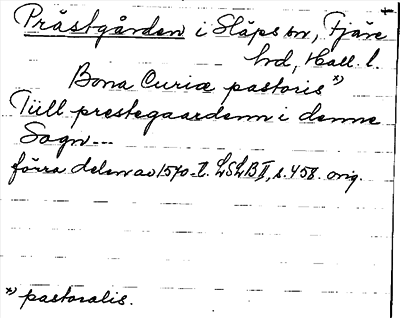 Prästgården i Släps sn, Fjäre
hd, Hall. l.
Bona Curiæ pastoris *)
Tiill prestegaardenn i denne
Sogn ---
förra delen av 1570-t. LSLB II, s. 458. orig.
*) pastoralis.